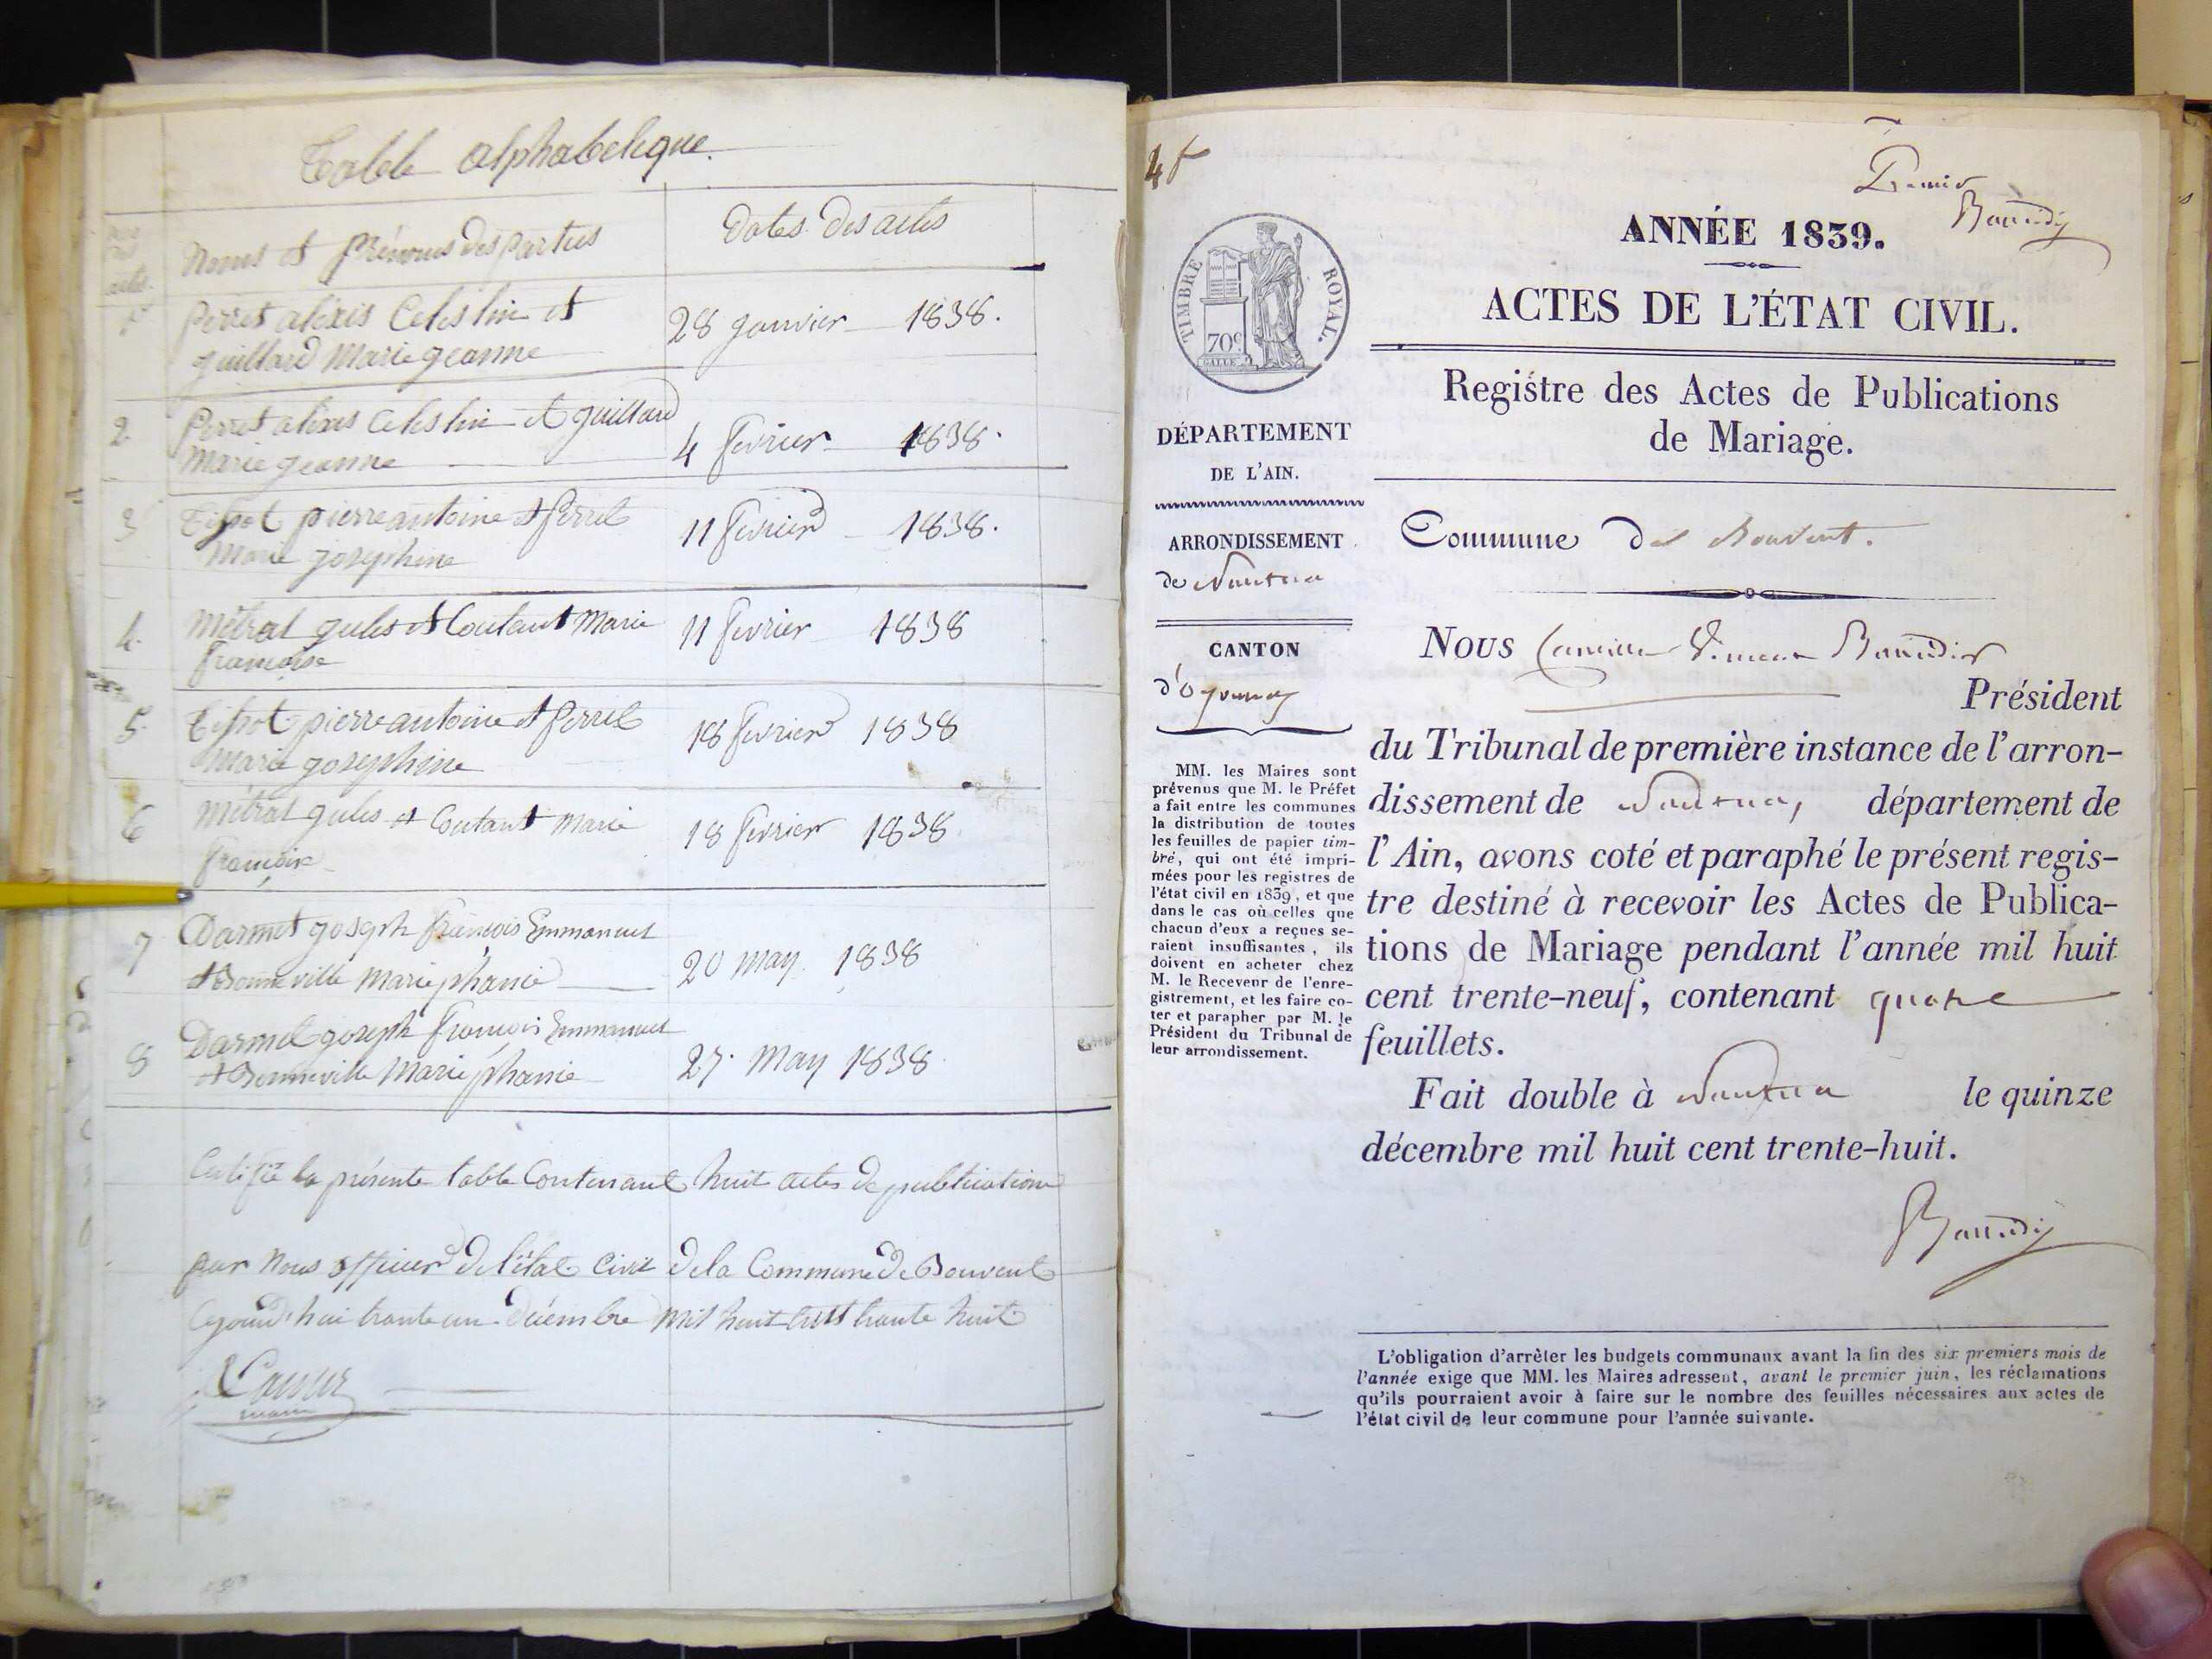 Table alphabetique.
Nos des actes
Noms et prénoms des parties
Dates des actes
1er
Perret alexis Celestin et
guillard Marie geanne
28 janvier 1838.
2
Perret alexis Celestin et guillard
Marie geanne
4 fevrier 1838.
3
Tissot pierre antoine et perret
Marie josephine
11 fevrier 1838.
4.
Métrat jules et Coutant Marie
françoise
11 fevrier 1838
5.
Tissot pierre antoine et perret
Marie josephine
18 fevrier 1838
6
Métrat jules et Coutant Marie
françoise
18 fevrier 1838
7
Darmet joseph françois Emmanuel
et Bonneville Marie phanie
20 may 1838
8
Darmet joseph françois Emmanuel
et Bonneville Marie phanie
27 May 1838
Certifié la présente table Contenant huit actes de publication
par Nous officier de l'état civil de la Commune de Bouvent
Cejourd'hui trente un décembre mil huit cent trente huit
maire
Premier
ANNÉE 1839.
ACTES DE L'ÉTAT CIVIL.
TIMBRE ROYAL.
70c
Registre des Actes de Publications
de Mariage.
DÉPARTEMENT
DE L'AIN.
ARRONDISSEMENT
de Nantua
CANTON
d'Oyonnax
MM. les Maires sont
prévenus que M. le Préfet
a fait entre les communes
la distribution de toutes
les feuilles de papier tim-
bré, qui ont été impri-
mées pour les registres de
l'état civil en 1839, et que
dans le cas où celles que
chacun d'eux a reçues se-
raient insuffisantes, ils
doivent en acheter chez
M. le Receveur de l'enre-
gistrement, et les faire co-
ter et parapher par M. le
Président du Tribunal de
leur arrondissement.
Commune de Bouvent.
NOUS
Président
du Tribunal de première instance de l'arron-
dissement de Nantua, département de
l'Ain, avons coté et paraphé le présent regis-
tre destiné à recevoir les Actes de Publica-
tions de Mariage pendant l'année mil huit
cent trente-neuf, contenant quatre
feuillets.
Fait double à Nantua le quinze
décembre mil huit cent trente-huit.
L'obligation d'arrêter les budgets communaux avant la fin des six premiers mois de
l'année exige que MM. les Maires adressent, avant le premier juin, les réclamations
qu'ils pourraient avoir à faire sur le nombre des feuilles nécessaires aux actes de
l'état civil de leur commune pour l'année suivante.